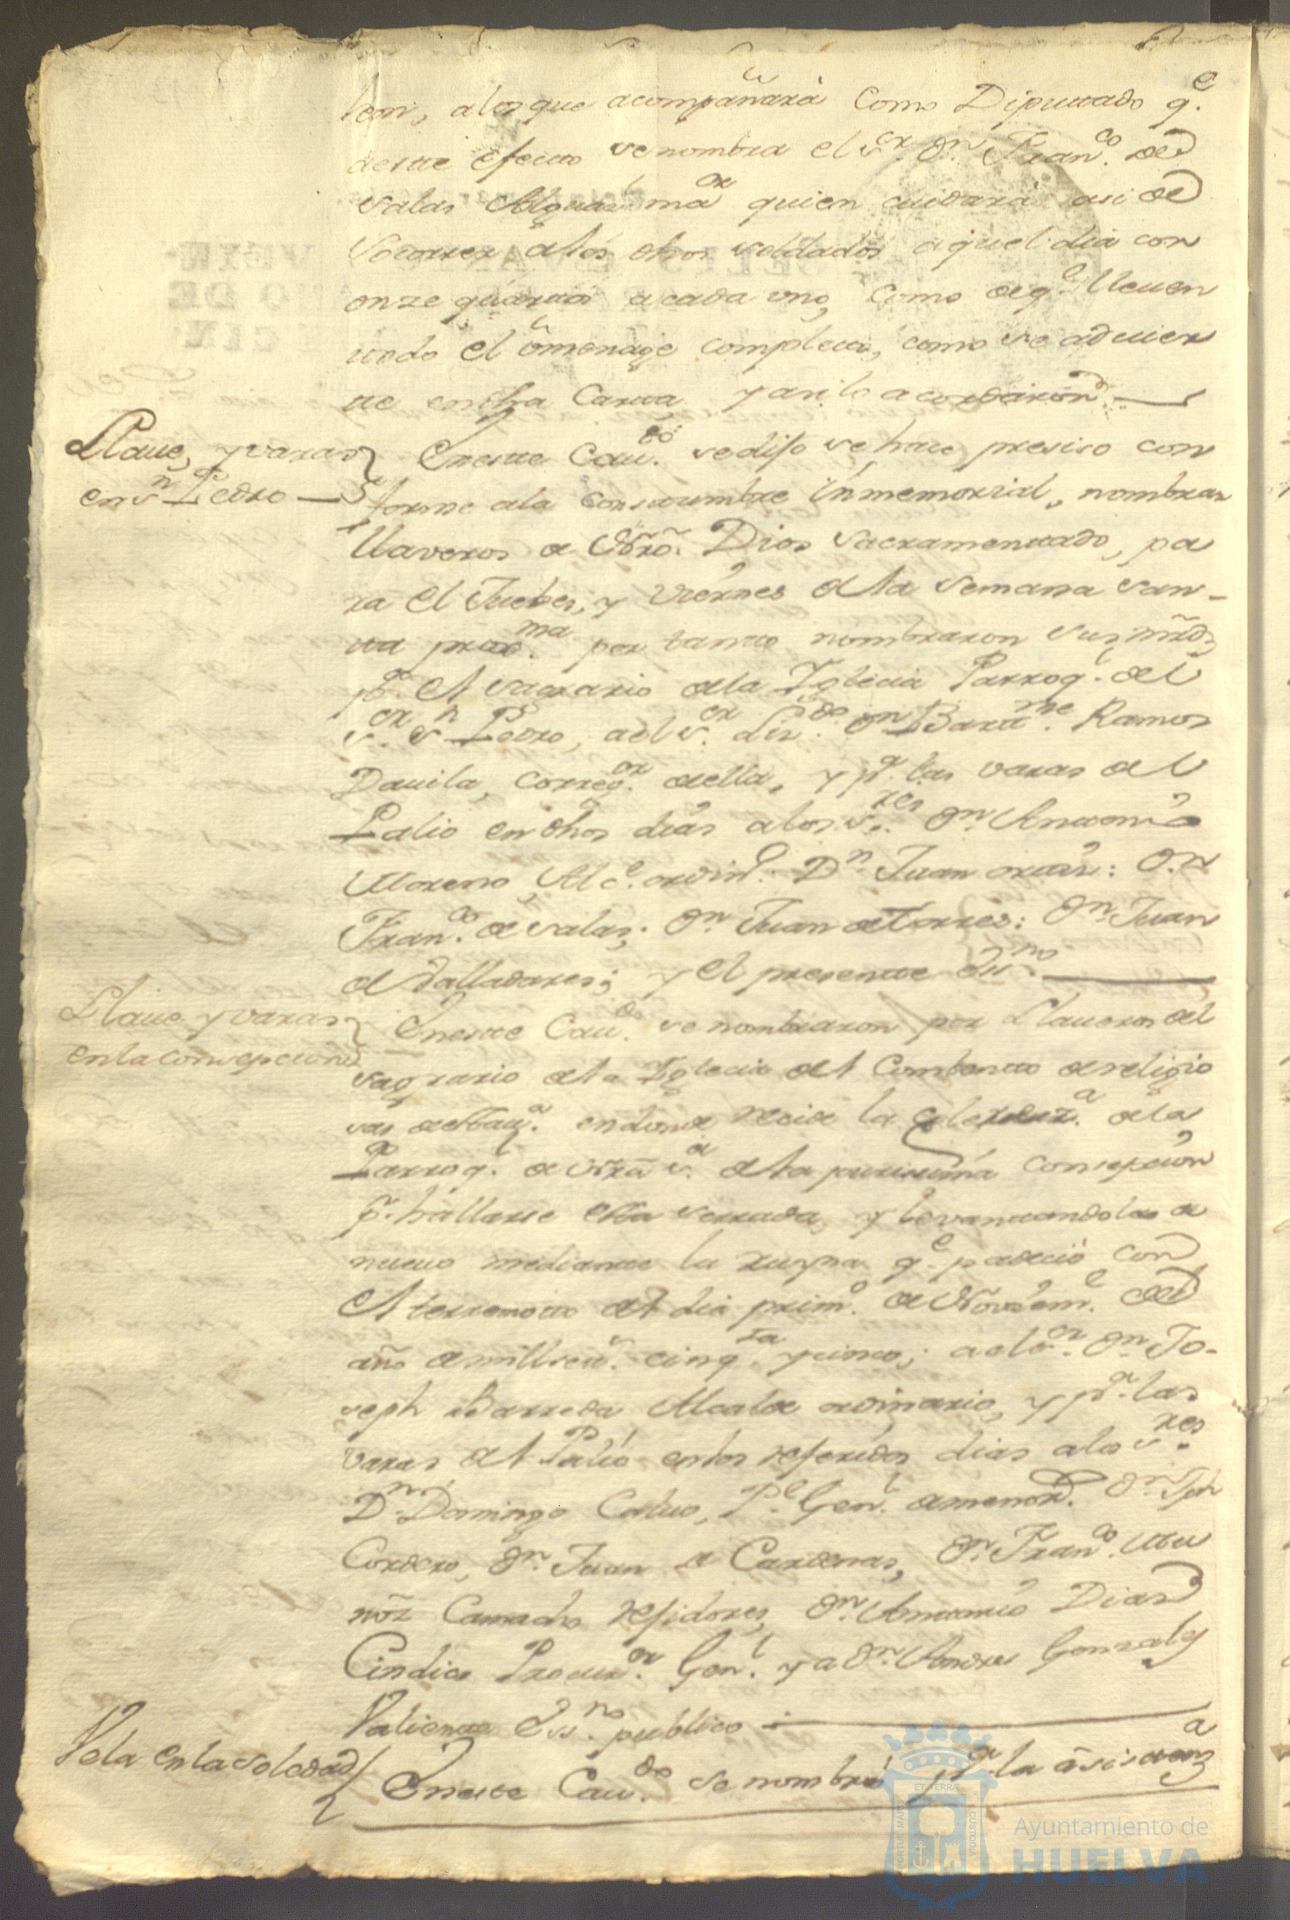 leon, a los que acompañará como Diputado q.e
a este efecto se nombra el s.or D.n Fran.co de
Salas Alguas.l ma.or quien cuidará asi de
socorrer a los dhos soldados aquel dia con
onze quartos a cada vno, como de q.e lleven
todo el omenage completo, como se advier
te en dha Carta y asi lo acordaron
Llaue, y varas
en s.n Pedro
En este Cau.do se dijo se hace presiso con
forme a la Constumbre inmemorial, nombrar
llaveros a Ntro. Dios Sacramentado, pa
ra el Juebes, y Viernes de la Semana San-
ta prox.ma por tanto nombraron sus mrds
p.a el sagrario de la Iglecia Parroq.l del
s.or s.n Pedro, al s.or Liz.do D.n Barth.me Ramos
Dauila, Correg.or de ella, y p.a las varas del
Palio en dhos dias a los s.res D.n Antonio
Moreno Alc.e ordin.o: D.n Juan ortiz: D.n
Fran.co de Salas: D.n Juan de Torres: D.n Juan
de Valladares; y el presente Ess.no
Llaue y varas
en la Consepcion
En este Cau.do se nombraron por Llaueros del
sagrario de la Iglecia del Combento de religio
sas de sta v.a en donde recide la de la
Parroq.l de Ntra s.a de la purissima Consepcion
p.r hallarse esta serrada, y levantandola de
nueuo mediante la ruyna q.e padeció con
el terremoto del dia prim.o de Noviem.e del
año de mill set.s cinq.ta y cinco; a el s.or D.n Jo-
seph Barreda Alcalde ordinario, y p.a las
varas del Palio en los referidos dias a los s.res
D.n Domingo Caluo, P.e Gen.l de menor.s D.n Jph
Cordero, D.n Juan de Cardenas, D.n Fran.co Mu
ñoz Camacho regidores, D.n Antonio Dias
Cindico Procur.or Gen.l y a D.n Andres Gonzales
Valiente Ess.no publico
Vela en la Soledad
En este Cau.do se nombró p.a la asistenz.a
Ayuntamiento de
HUELVA